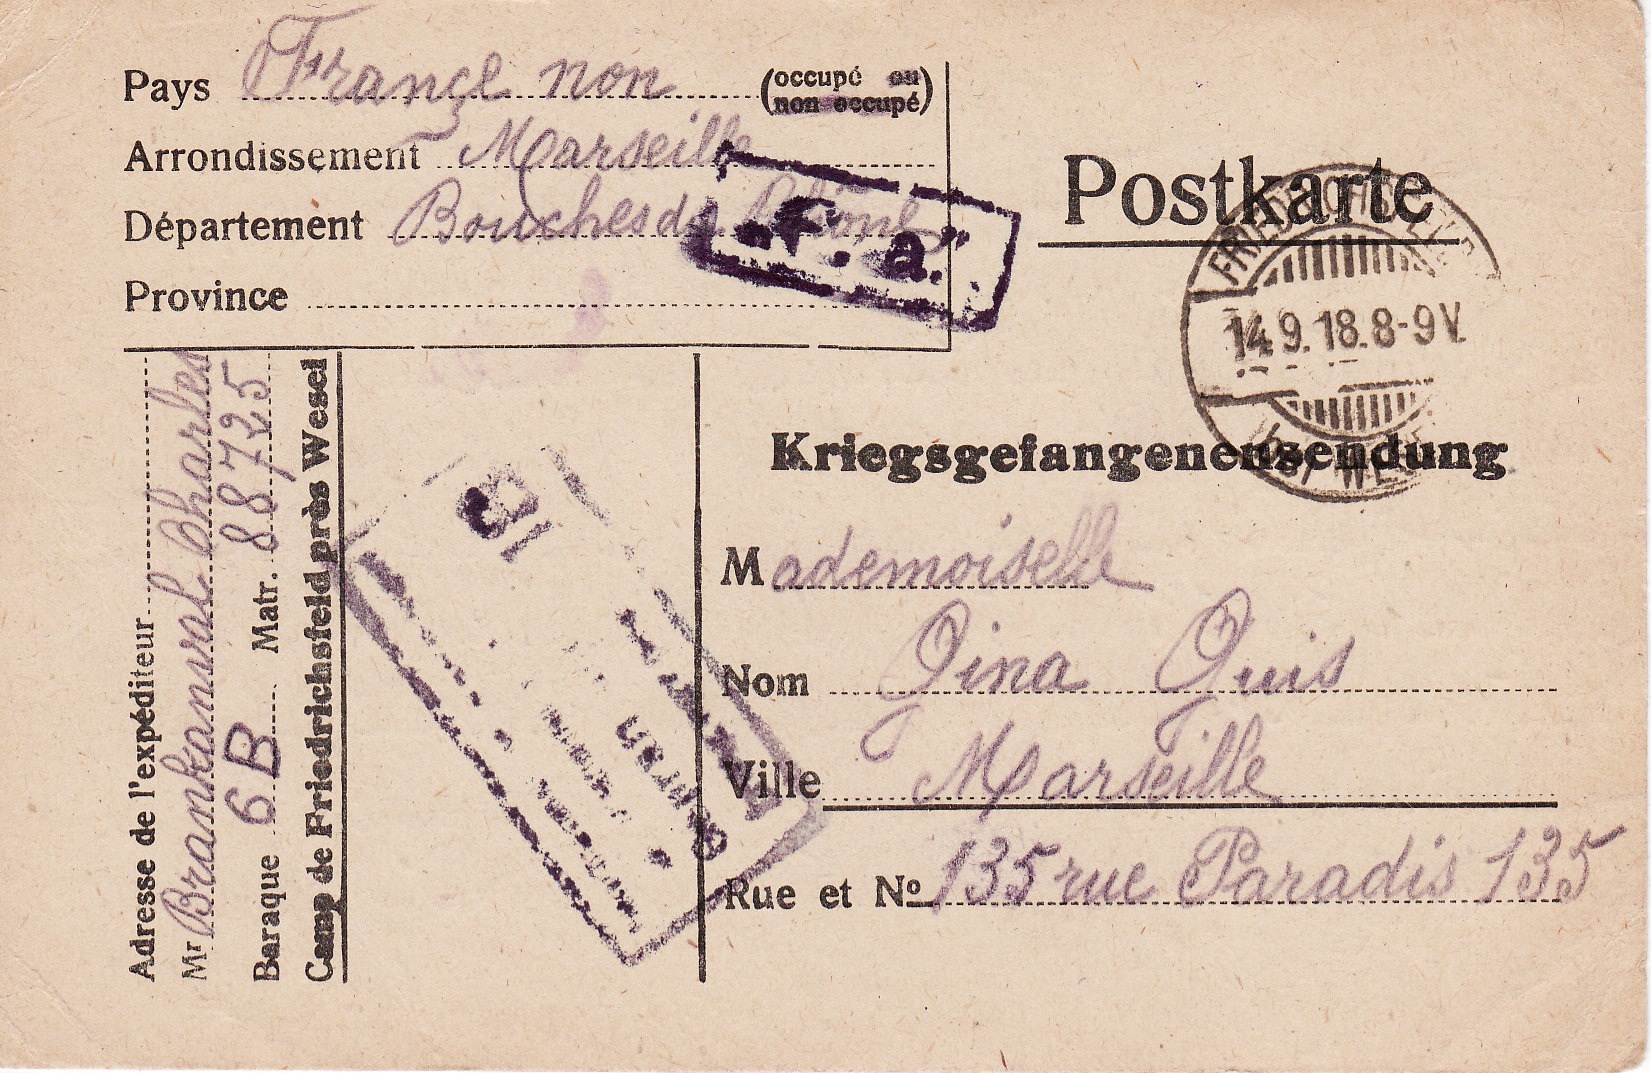 Pays France non (occupé ou
non occupé)
Arrondissement Marseille
Département Bouches du Rhône
Province
"F. a."
Postkarte
FRIEDRICHSFELD
14.9.18.8-9V.
Kriegsgefangenensendung
Mademoiselle
Nom Gina Guis
Ville Marseille
Rue et No 135 rue Paradis 135
Adresse de l'expéditeur
Mr Charles
Baraque 6B Matr. 88725
Camp de Friedrichsfeld près Wesel